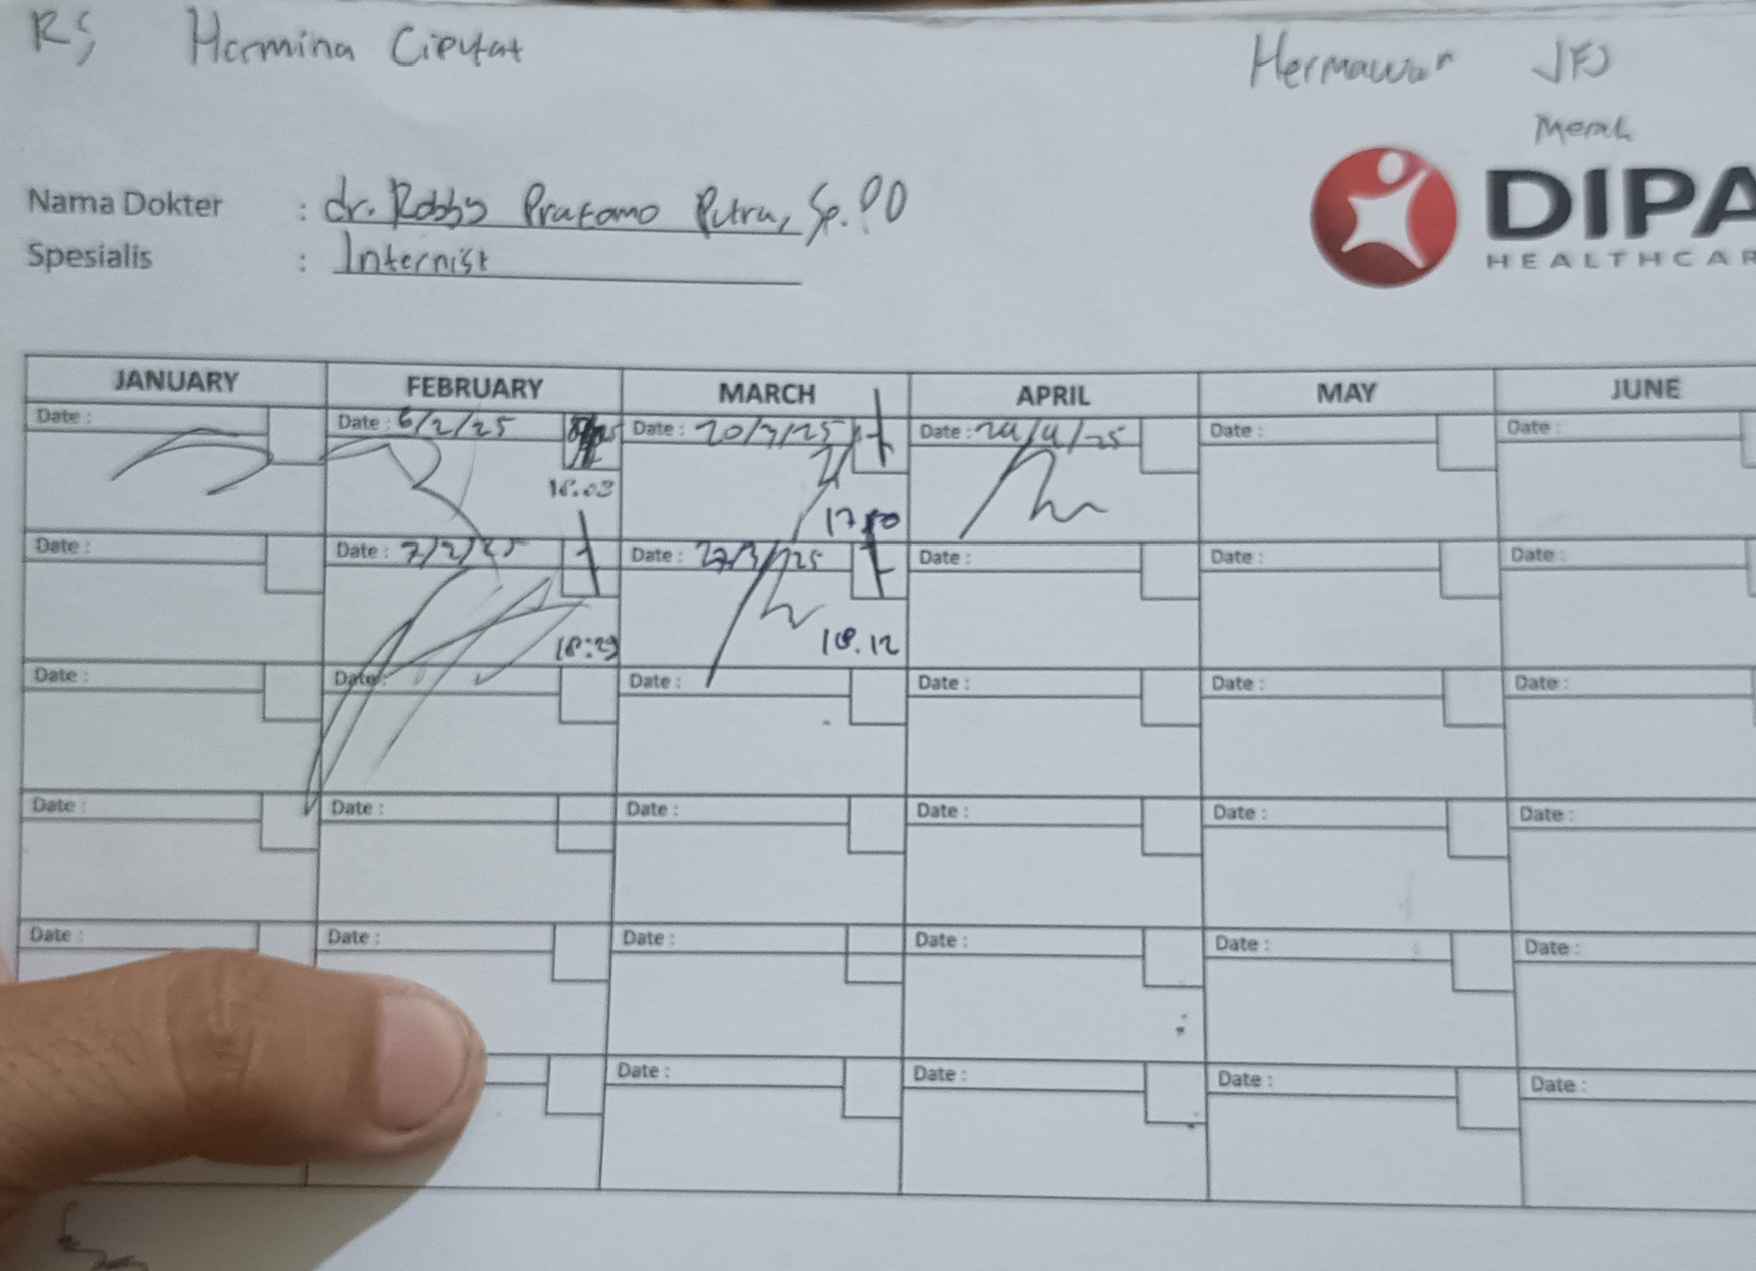 RS Hermina Ciputat
Hermawan JFJ
Merah
Nama Dokter : dr. Robby Pratomo Putra, Sp.PD
DIPA
HEALTHCAR
Spesialis : Internist
JANUARY FEBRUARY MARCH APRIL MAY JUNE
Date : Date : 6/2/25 Date : 20/3/25 Date : 24/4/25 Date : Date :
16.03 17.50
Date : Date : 7/2/25 Date : 27/3/25 Date : Date : Date :
18:29 18.12
Date : Date : Date : Date : Date : Date :
Date : Date : Date : Date : Date : Date :
Date : Date : Date : Date : Date : Date :
Date : Date : Date : Date :